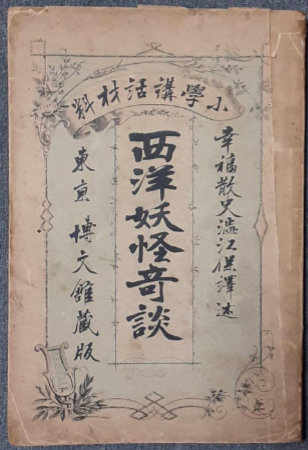 小學講話材料
幸福散史澁江保譯述
西洋妖怪奇談
東京 博文館藏版